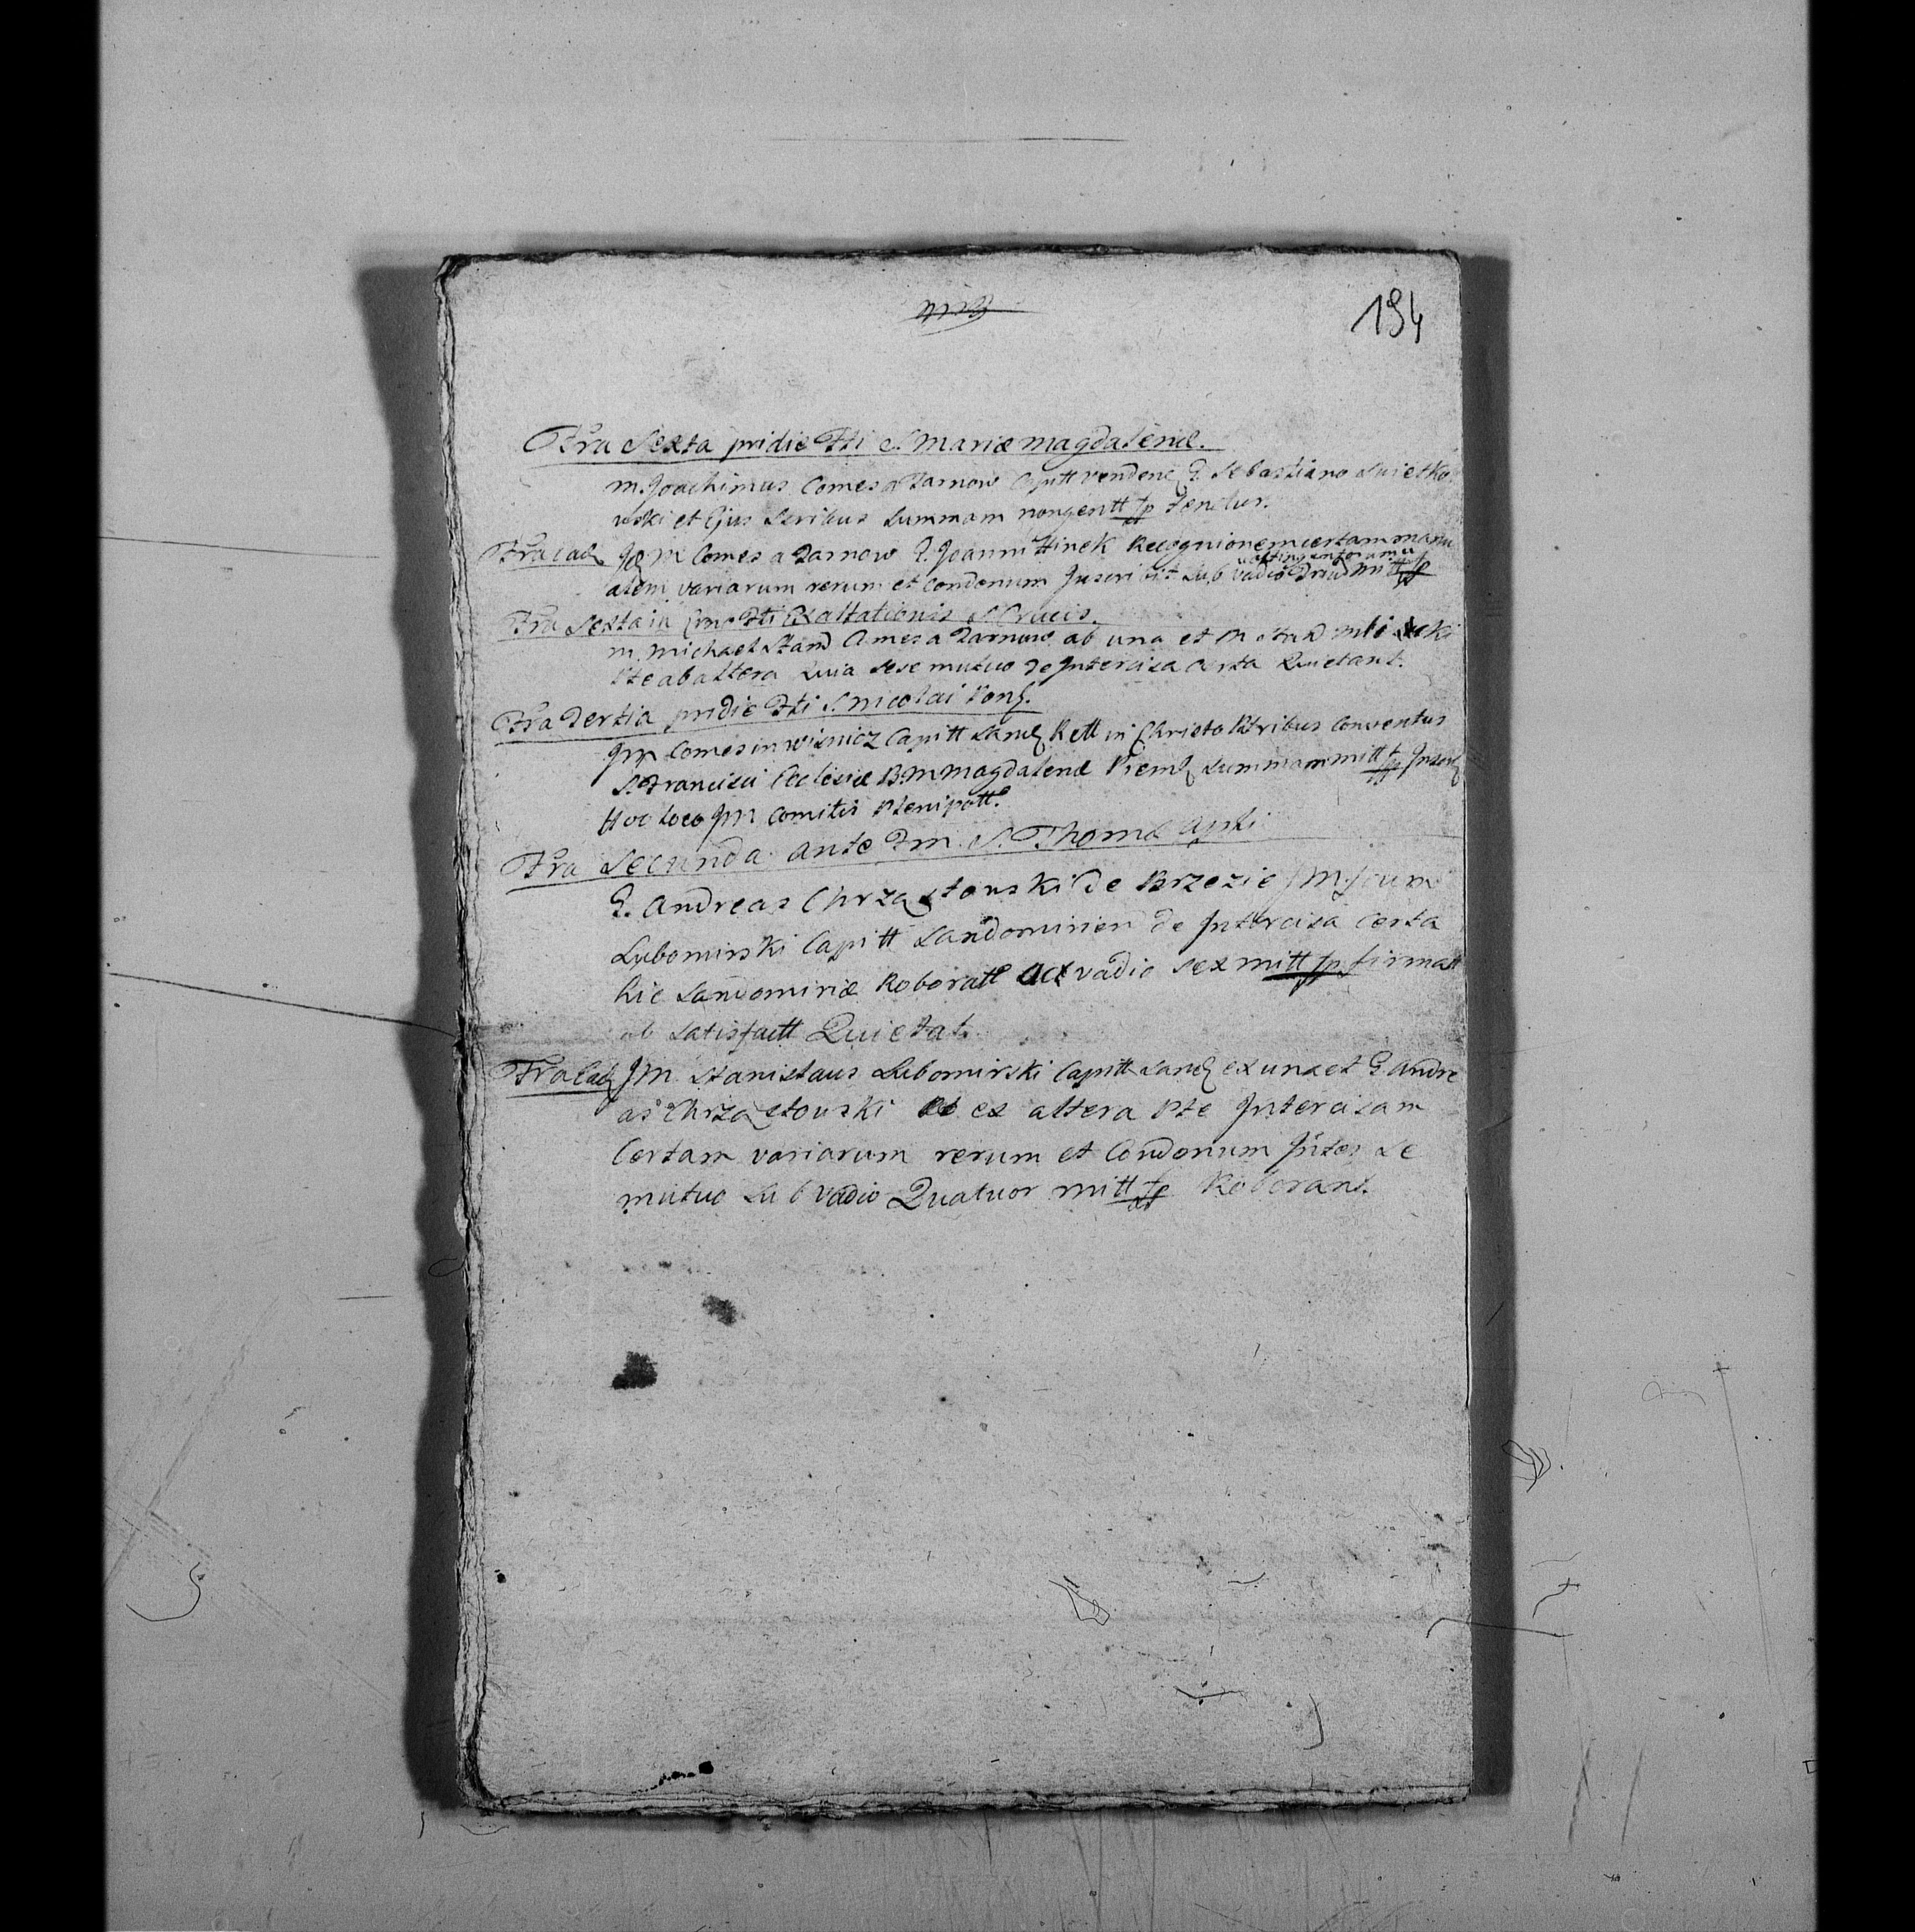 194
Fra Sexta pridie Fti S. Mariæ Magdalenæ.
M. Joachimus Comes a Tarnow Capitt vendenc G. Sebastiano Swietko
wski et Ejus Seribus Summam nongentt fp tenetur.
Fra ead JM Comes a Tarnow G. Joanni Hinek Recognionem certam manu
alem variarum rerum et Condonum Inscribit Sub vadio mitt fp
Fra Sexta in Fti Exaltationis S Crucis.
M. Michael Stand Comes a Tarnow ab una et M
Pte ab altera quia sese mutuo de Intercisa certa Quietant.
Fra Tertia pridie Fti S. Nicolai Pont.
JM Comes in Wisnicz Capitt Sand Rett in Christo Patribus Conventus
S. Francisci Ecclesiæ B. M Magdalenæ Summam mitt fp Inscr
Hoc loco JM Comitis Plenipott.
Fra Secunda ante Fm S. Thomæ Apli
G. Andreas Chrząstouski de Brzezie JM
Lubomirski Capitt Sandomirien de Intercisa Certa
hic Sandomiriæ Roboratt ac vadio sex mitt fp firmatt
ob satisfactt Quietat.
Fra ead JM Stanislaus Lubomirski Capitt Sand ex una et G. Andre
as Chrząstouski ex altera Pte Intercisam
Certam variarum rerum et Condonum Inter se
mutuo Sub vadio Quatuor mitt fp Roborant.